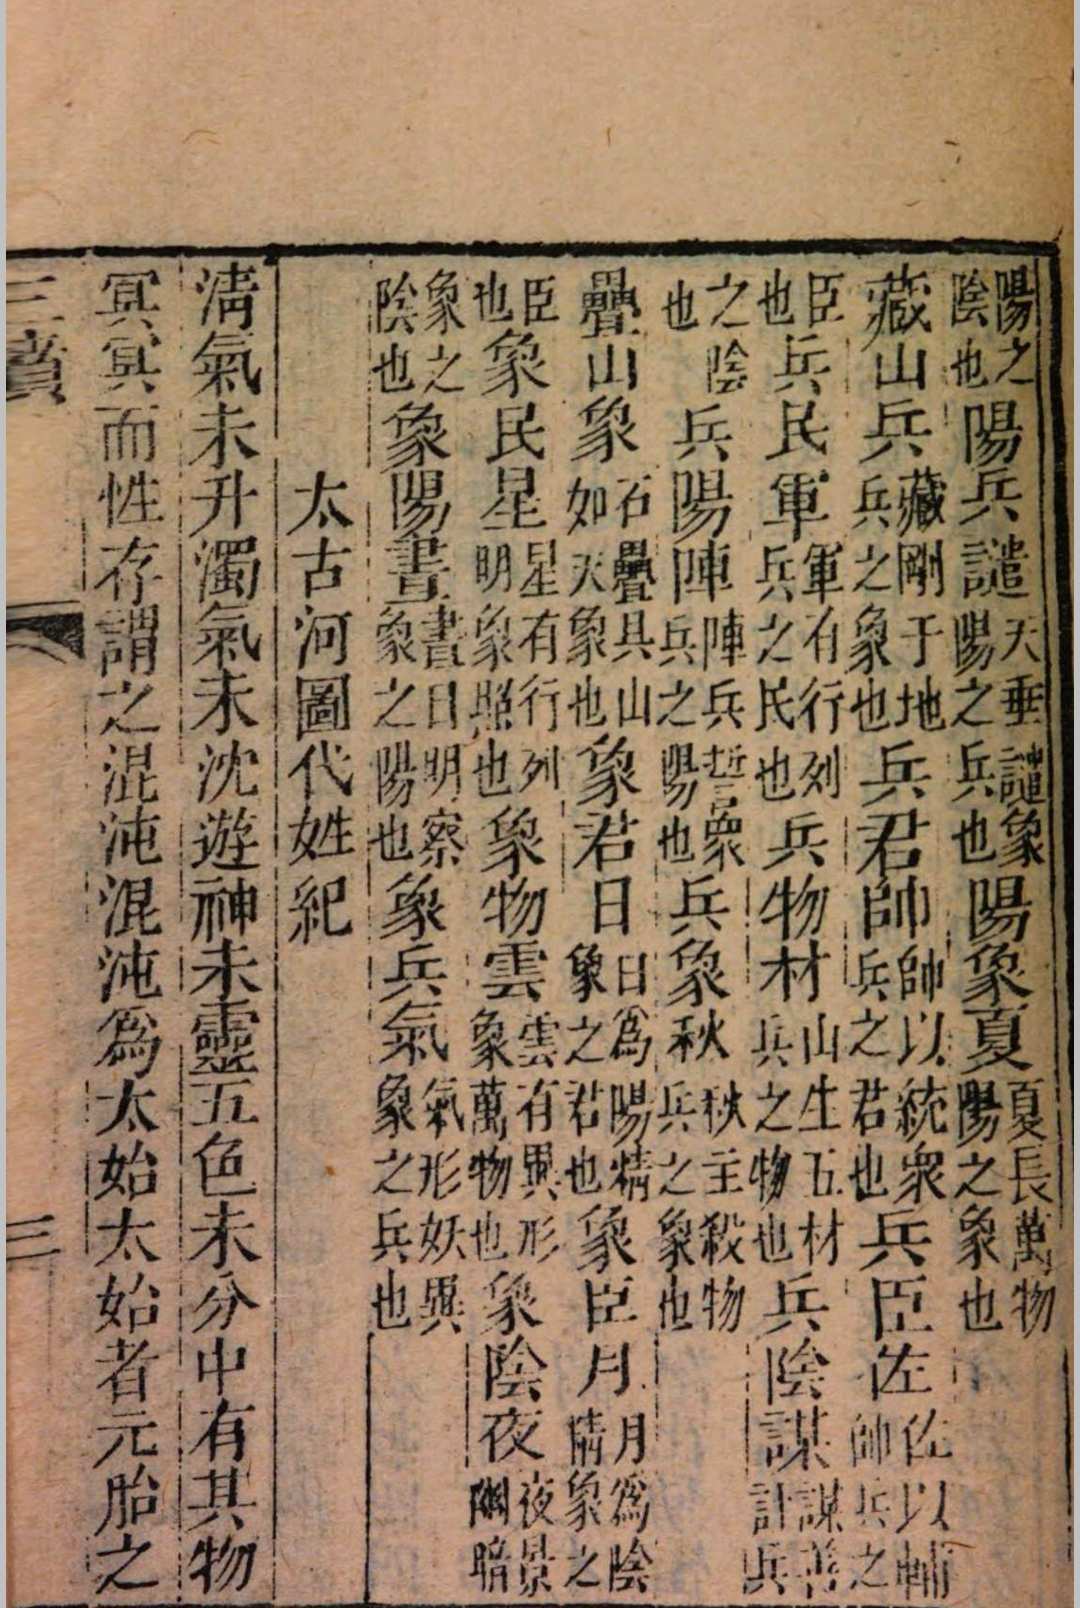 陽之陰也陽兵譴天垂譴象陽之兵也陽象夏夏長萬物陽之象也
藏山兵藏剛于地兵之象也兵君帥帥以統衆兵之君也兵臣佐佐以輔帥兵之
臣也兵民軍軍有行列兵之民也兵物材山生五材兵之物也兵陰謀謀善計兵
之陰也兵陽陣陣兵誓衆兵之陽也兵象秋秋主殺物兵之象也
疊山象石疊具山如天象也象君日日爲陽精象之君也象臣月月爲陰精象之
臣也象民星星有行列明象照也象物雲雲有異形象萬物也象陰夜夜景幽暗
象之陰也象陽晝晝日明察象之陽也象兵氣氣形妖異象之兵也
太古河圖代姓紀
清氣未升濁氣未沈遊神未靈五色未分中有其物
冥冥而性存謂之混沌混沌爲太始太始者元胎之
三墳
三